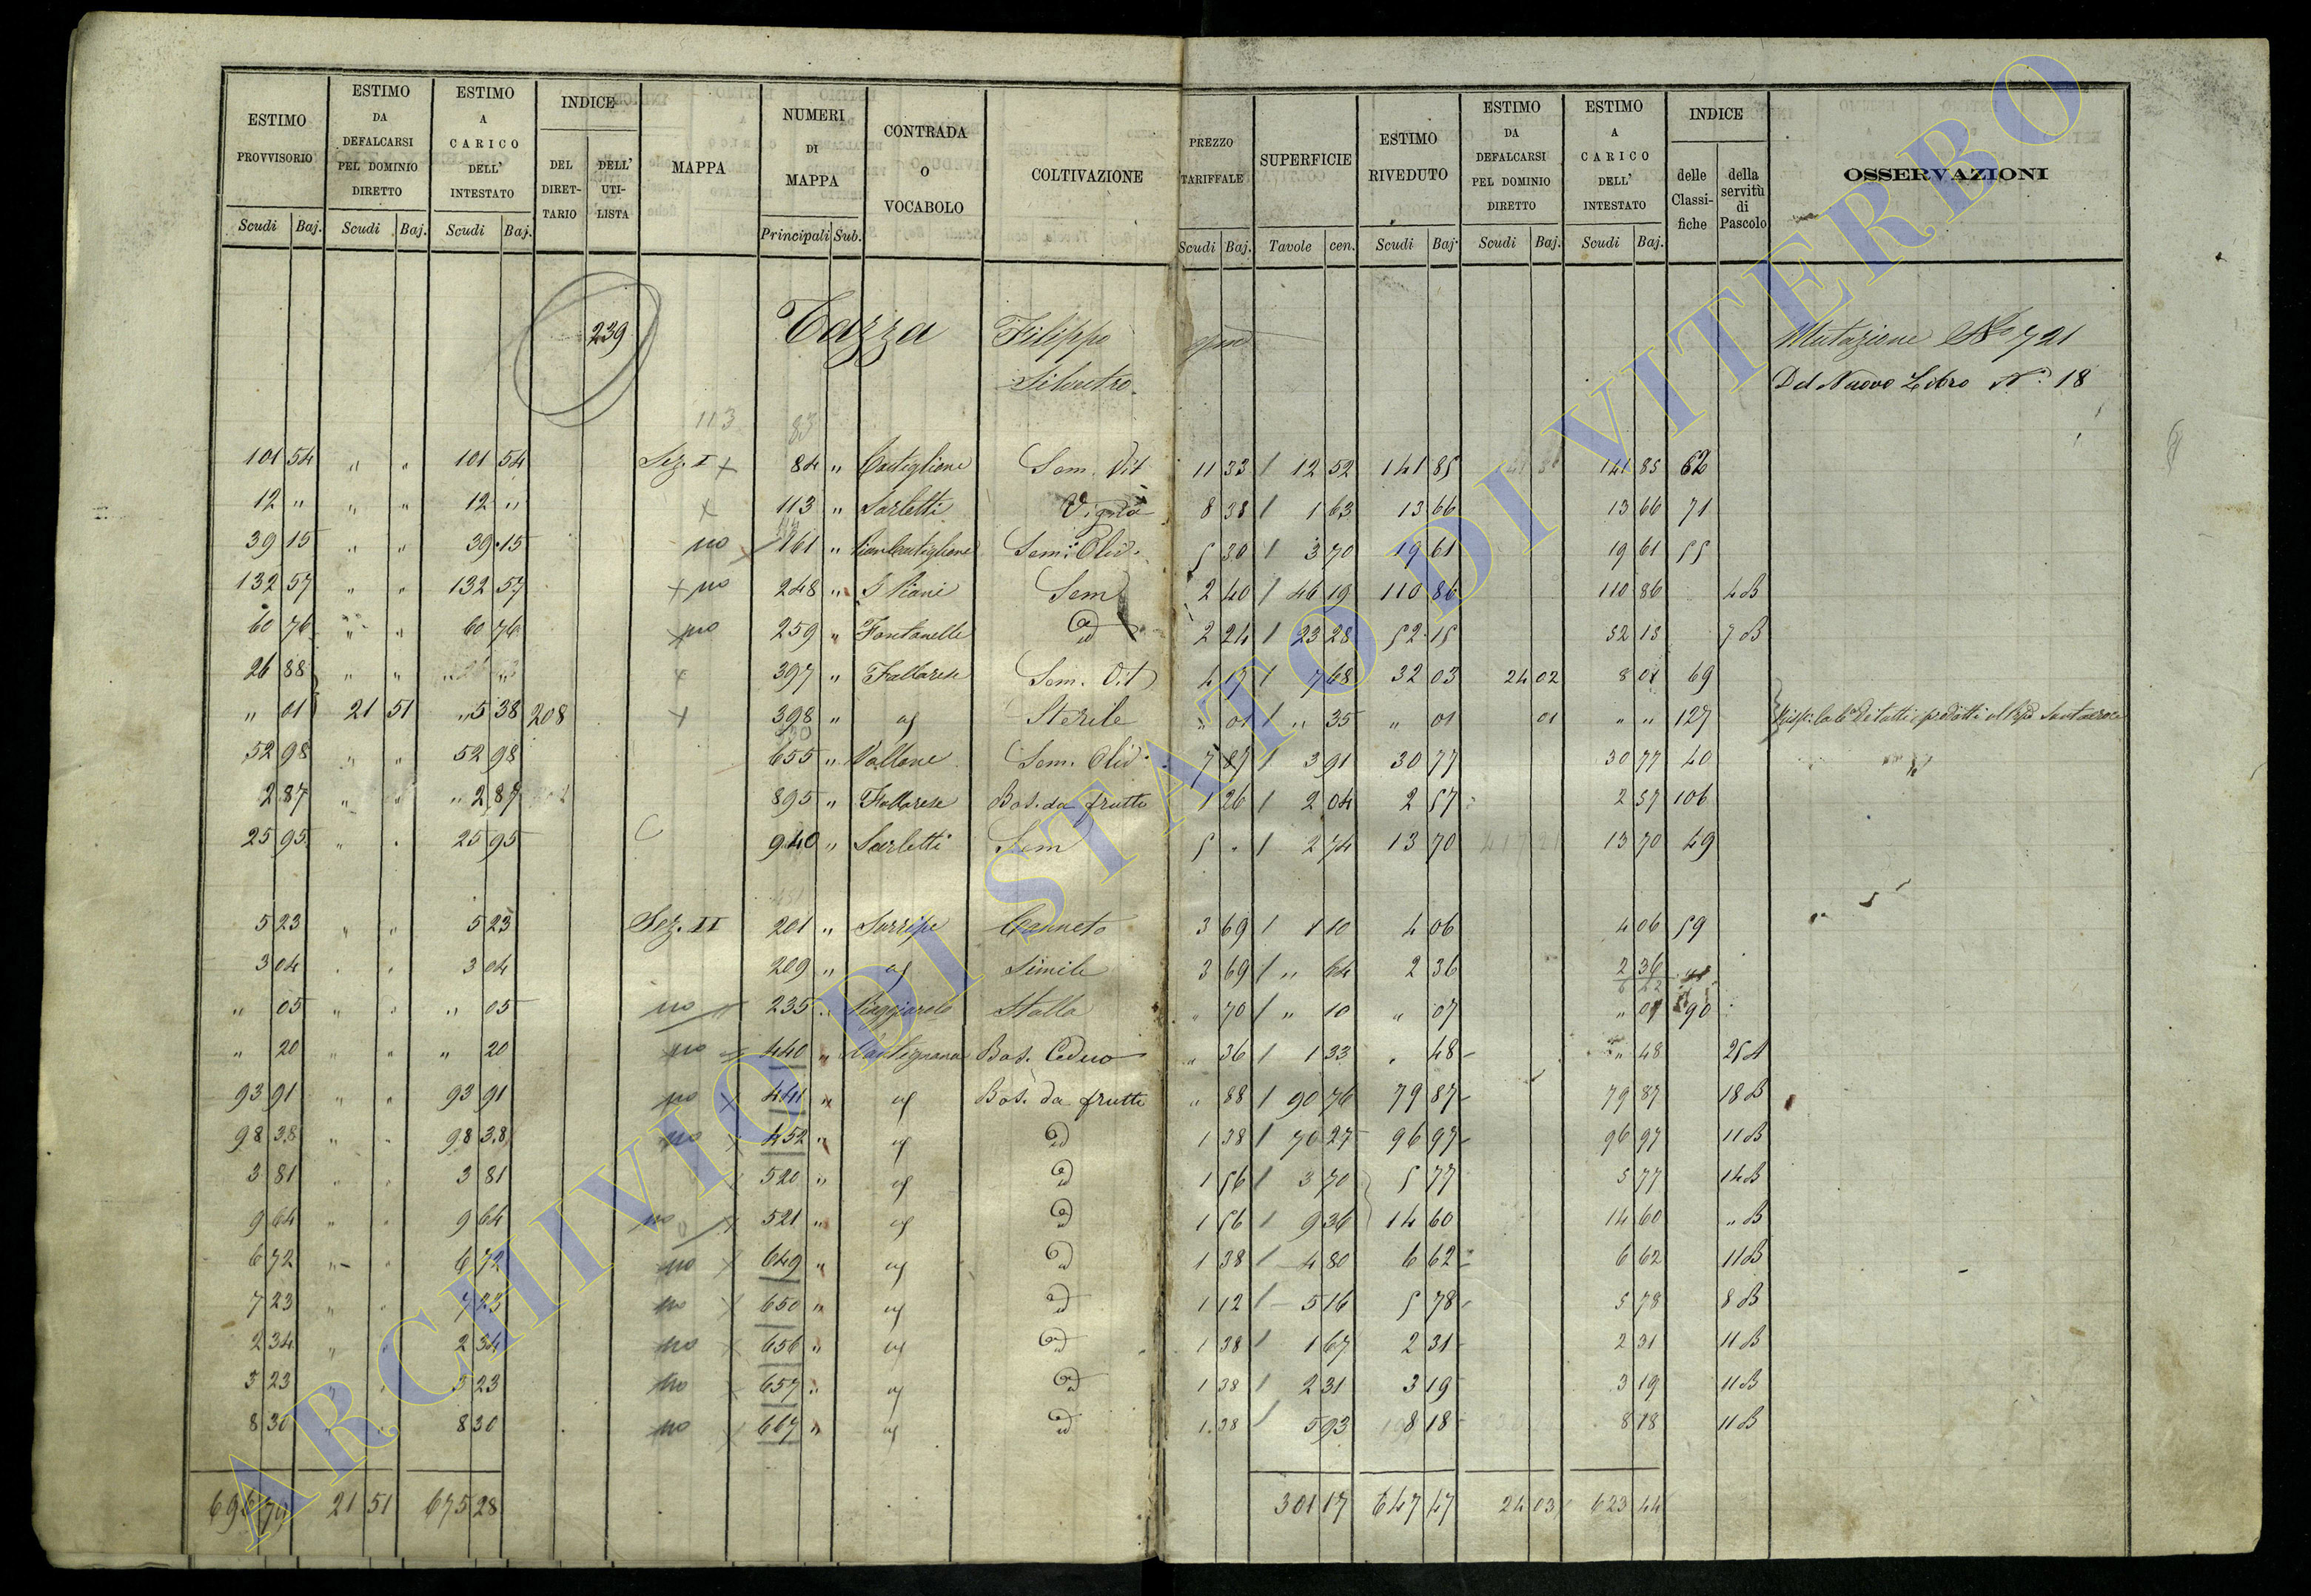 ESTIMO PROVVISORIO | ESTIMO DA DEFALCARSI PEL DOMINIO DIRETTO | ESTIMO A CARICO DELL' INTESTATO | INDICE | MAPPA | NUMERI DI MAPPA | CONTRADA O VOCABOLO | COLTIVAZIONE | PREZZO TARIFFALE | SUPERFICIE | ESTIMO RIVEDUTO | ESTIMO DA DEFALCARSI PEL DOMINIO DIRETTO | ESTIMO A CARICO DELL' INTESTATO | INDICE | OSSERVAZIONI
DEL DIRETTARIO | DELL' UTILISTA | delle Classifiche | della servitù di Pascolo
Scudi | Baj. | Scudi | Baj. | Scudi | Baj. | Principali | Sub. | Scudi | Baj. | Tavole | cen. | Scudi | Baj. | Scudi | Baj. | Scudi | Baj.
239 Tazza Filippo qm Mutazione No 721
Silvestro Del Nuovo Libro N. 18
113 83
101 54 " " 101 54 Sez. I 84 " Castiglione Sem. Vit 11 33 12 52 141 85 141 85 62
12 " " " 12 " 113 " Sarletti Vigna 8 38 1 63 13 66 13 66 71
39 15 " " 39 15 no 161 " Sem. Oliv. 5 30 3 70 19 61 19 61 55
132 57 " " 132 57 no 248 " Piani Sem 2 40 46 19 110 86 110 86 4 B
60 76 " " 60 76 no 259 " Fontanelle id 2 24 23 28 52 15 52 15 7 B
26 88 " " 397 " Fallarese Sem. Vit 4 17 7 68 32 03 24 02 8 01 69
" 01 21 51 " 5 38 208 398 " id Sterile " 01 " 35 " 01 01 " " 127
52 98 " " 52 98 655 " Vallone Sem. Oliv. 7 87 3 91 30 77 30 77 40
2 87 " " " 2 87 895 " Fallarese Bos. da frutto 1 26 2 04 2 57 2 57 106
25 95 " " 25 95 940 " Sarletti Sem 5 " 2 74 13 70 13 70 49
5 23 " " 5 23 Sez. II 201 " Surripe Canneto 3 69 1 10 4 06 4 06 59
3 04 " " 3 04 209 " id Simile 3 69 " 64 2 36 2 36
" 05 " " " 05 no 235 " Poggiarolo Stalla " 70 " 10 " 07 " 07 90
" 20 " " " 20 no 440 " Bos. Ceduo " 36 1 33 " 48 " 48 25 A
93 91 " " 93 91 no 441 " id Bos. da frutto " 88 90 76 79 87 79 87 18 B
98 38 " " 98 38 no 452 " id id 1 38 70 27 96 97 96 97 11 B
3 81 " " 3 81 520 " id id 1 56 3 70 5 77 5 77 14 B
9 64 " " 9 64 no 521 " id id 1 56 9 36 14 60 14 60 " B
6 72 " " 6 72 no 649 " id id 1 38 4 80 6 62 6 62 11 B
7 23 " " 7 23 no 650 " id id 1 12 5 16 5 78 5 78 8 B
2 34 " " 2 34 no 656 " id id 1 38 1 67 2 31 2 31 11 B
3 23 " " 3 23 no 657 " id id 1 38 2 31 3 19 3 19 11 B
8 30 " " 8 30 no 667 " id id 1 38 5 93 8 18 8 18 11 B
696 79 21 51 675 28 301 17 647 47 24 03 623 44
ARCHIVIO DI STATO DI VITERBO